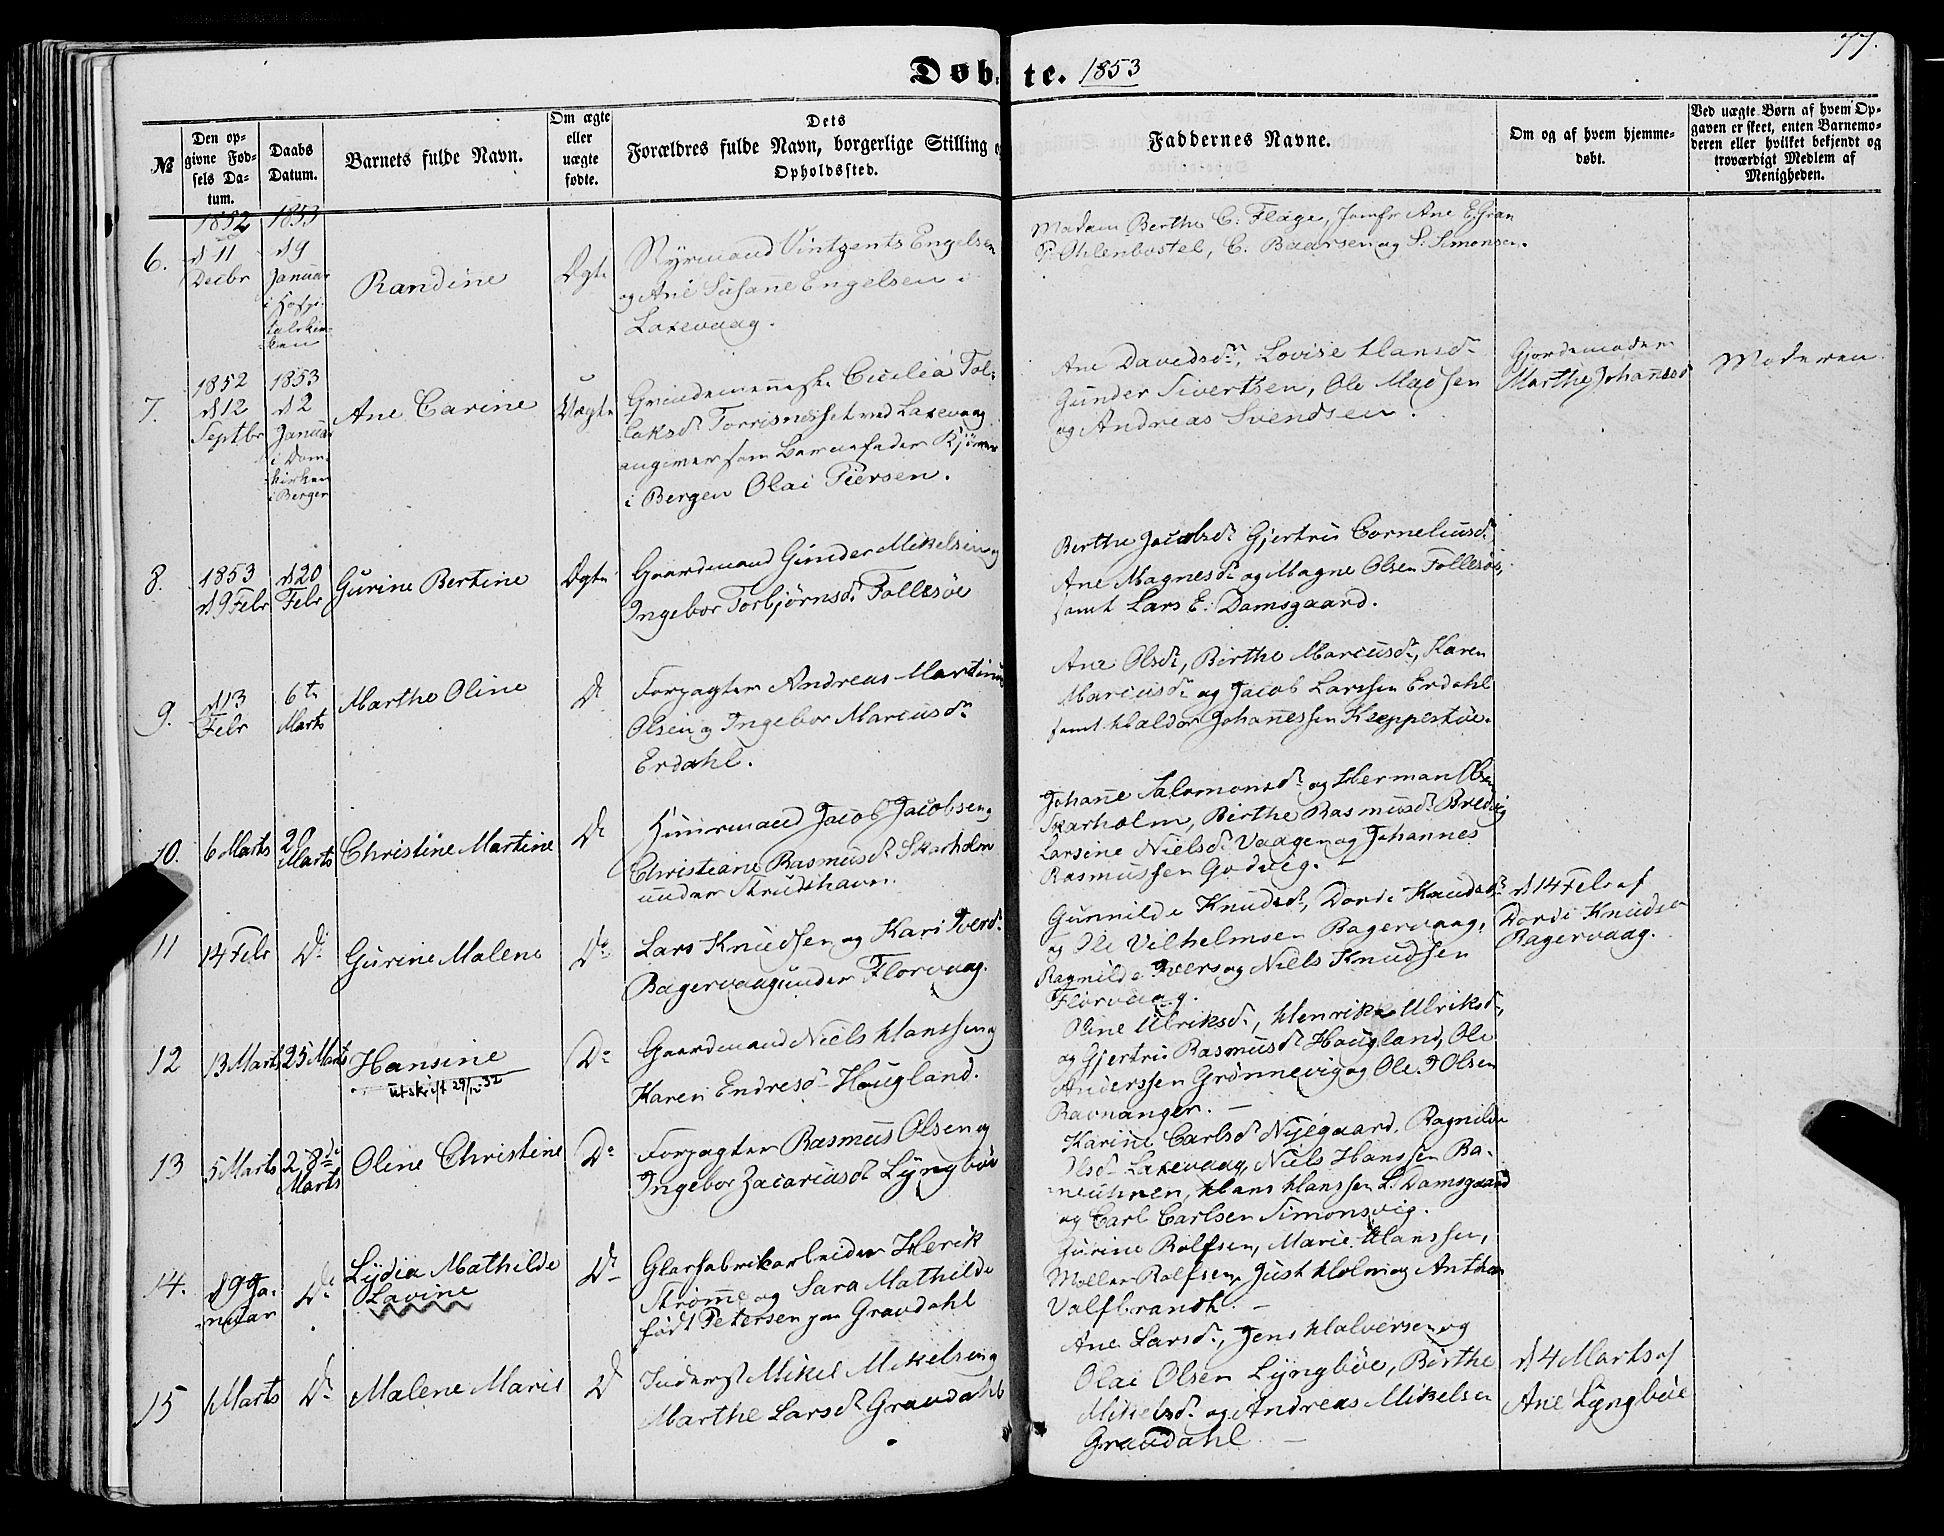 77.
Døbte. 1853
№
Den op-
givne Fød-
sels Da-
tum.
Daabs
Datum.
Barnets fulde Navn.
Om ægte
eller
uægte
fødte.
Dets
Forældres fulde Navn, borgerlige Stilling o
Opholdssted.
Faddernes Navne.
Om og af hvem hjemme-
døbt.
Ved uægte Børn af hvem Op-
gaven er skeet, enten Barnemo-
deren eller hvilket bekjendt og
troværdigt Medlem af
Menigheden.
6.
1852
d 11
Decbr
1853
d 9
Januar
i Hospi-
talskir-
ken
Randine
Ægte
Styrmand Vintzents Engelsen
og Ane Susanne Engelsen i
Laxevaag.
Madam Berthe C. Flage, Jomfr Ane E. Gran
P. Ohlenbostel, C. Baarsen og S. Simonsen.
7.
1852
d 12
Septbr
1853
d 2
Januar
i Dom-
kirken
i Bergen
Ane Carine
Uægte
Cicilia Tol-
laksdr Torrisnesset ved Laxevaag
angiver som Barnefader
i Bergen Olai Peersen.
Ane Davidsdr, Lovise Hansdr
Gunder Sivertsen, Ole Madsen
og Andreas Svendsen.
Gjordemoder
Marthe Johannesdr
Moderen.
8.
1853
d 9 Febr
d 20
Febr
Gurine Bertine
Ægte
Gaardmand Gunder Mikelsen og
Ingebor Torbjørnsdr Follesøe
Berthe Jacobsdr Gjertru Corneliusdr
Ane Magnesdr og Magne Olsen Follesøe,
samt Lars E. Damsgaard.
9.
d 13
Febr
6te
Marts
Marthe Oline
Do
Forpagter Andreas Martinus
Olsen og Ingebor Marcusdr
Erdahl.
Ane Olsdr, Birthe Marcusdr, Karen
Marcusdr og Jacob Larssen Erdahl
samt Haldor Johannessen Kleppestøe.
10.
6 Marts
20
Marts
Christine Martine
Do
Huusmand Jacob Jacobsen og
Christiane Rasmusdr Skarholm
under Strudshavn.
Johanne Salomonsdr og Herman Olsen
Skarholm, Birthe Rasmusdr Bredvig
Larsine Nielsdr Vaagen og Johannes
Rasmussen Godvig.
11
14 Febr
Do
Gurine Malene
Do
Lars Knudsen og Kari Iversdr
Bagervaag under Florvaag.
Gunnilde Knudsdr, Dorde Knudsdr
og Ole Vilhelmsen Bagervaag,
Ragnilde Ivers og Niels Knudsen
Florvaag.
d 14 Febr af
Dorde Knudsdr
Bagervaag.
12
13 Marts
25 Marts
Hansine
utskrift 29/12-32
Do
Gaardmand Niels Hanssen og
Karen Endresdr Hougland.
Oline Ulriksdr, Henrikke Ulriksdr,
og Gjertru Rasmusdr Hougland, Ole
Anderssen Grønnevig og Ole I Olsen
Ravnanger.
13
5 Marts
28de
Marts
Oline Christine
Do
Forpagter Rasmus Olsen og
Ingebor Zacariasdr Lyngbøe
Karine Carlsdr Nyegaard, Ragnilde
Olsdr Laxevaag, Niels Hanssen Ra-
Hans Hanssen L. Damsgaard
og Carl Carlsen Simonsvig.
14.
d 9 Ja-
nuar
Do
Lydia Mathilde
Lavine
Do
Glasfabrikarbeider Henrik
Strømme og Sara Mathilde
født Petersen paa Gravdahl
Gurine Rolfsen, Marie Hanssen,
Møller Rolfsen, Just Holm og Anthon
Valfbrandt.
15
1 Marts
Do
Malene Marie
Do
Inderst Mikel Mikelsen og
Marthe Larsdr Gravdahl
Ane Larsdr, Jens Halversen og
Olai Olsen Lyngbøe, Birthe
Mikelsdr og Andreas Mikelsen
Gravdahl
d 4 Marts af
Ane Lyngbøe